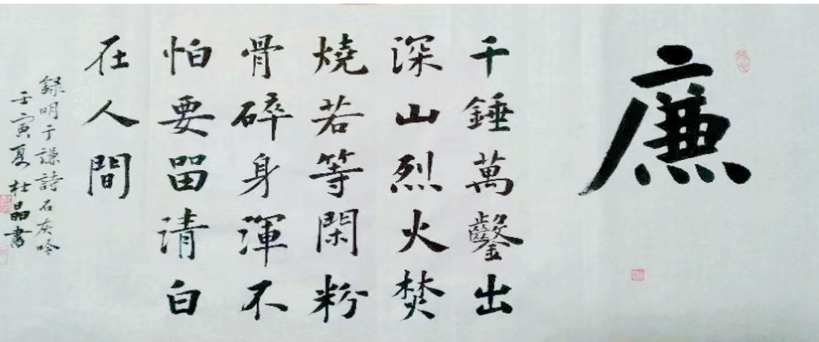 廉
千錘萬鑿出
深山烈火焚
燒若等閑粉
骨碎身渾不
怕要留清白
在人間
録明于謙詩石灰吟
壬寅夏杜晶書